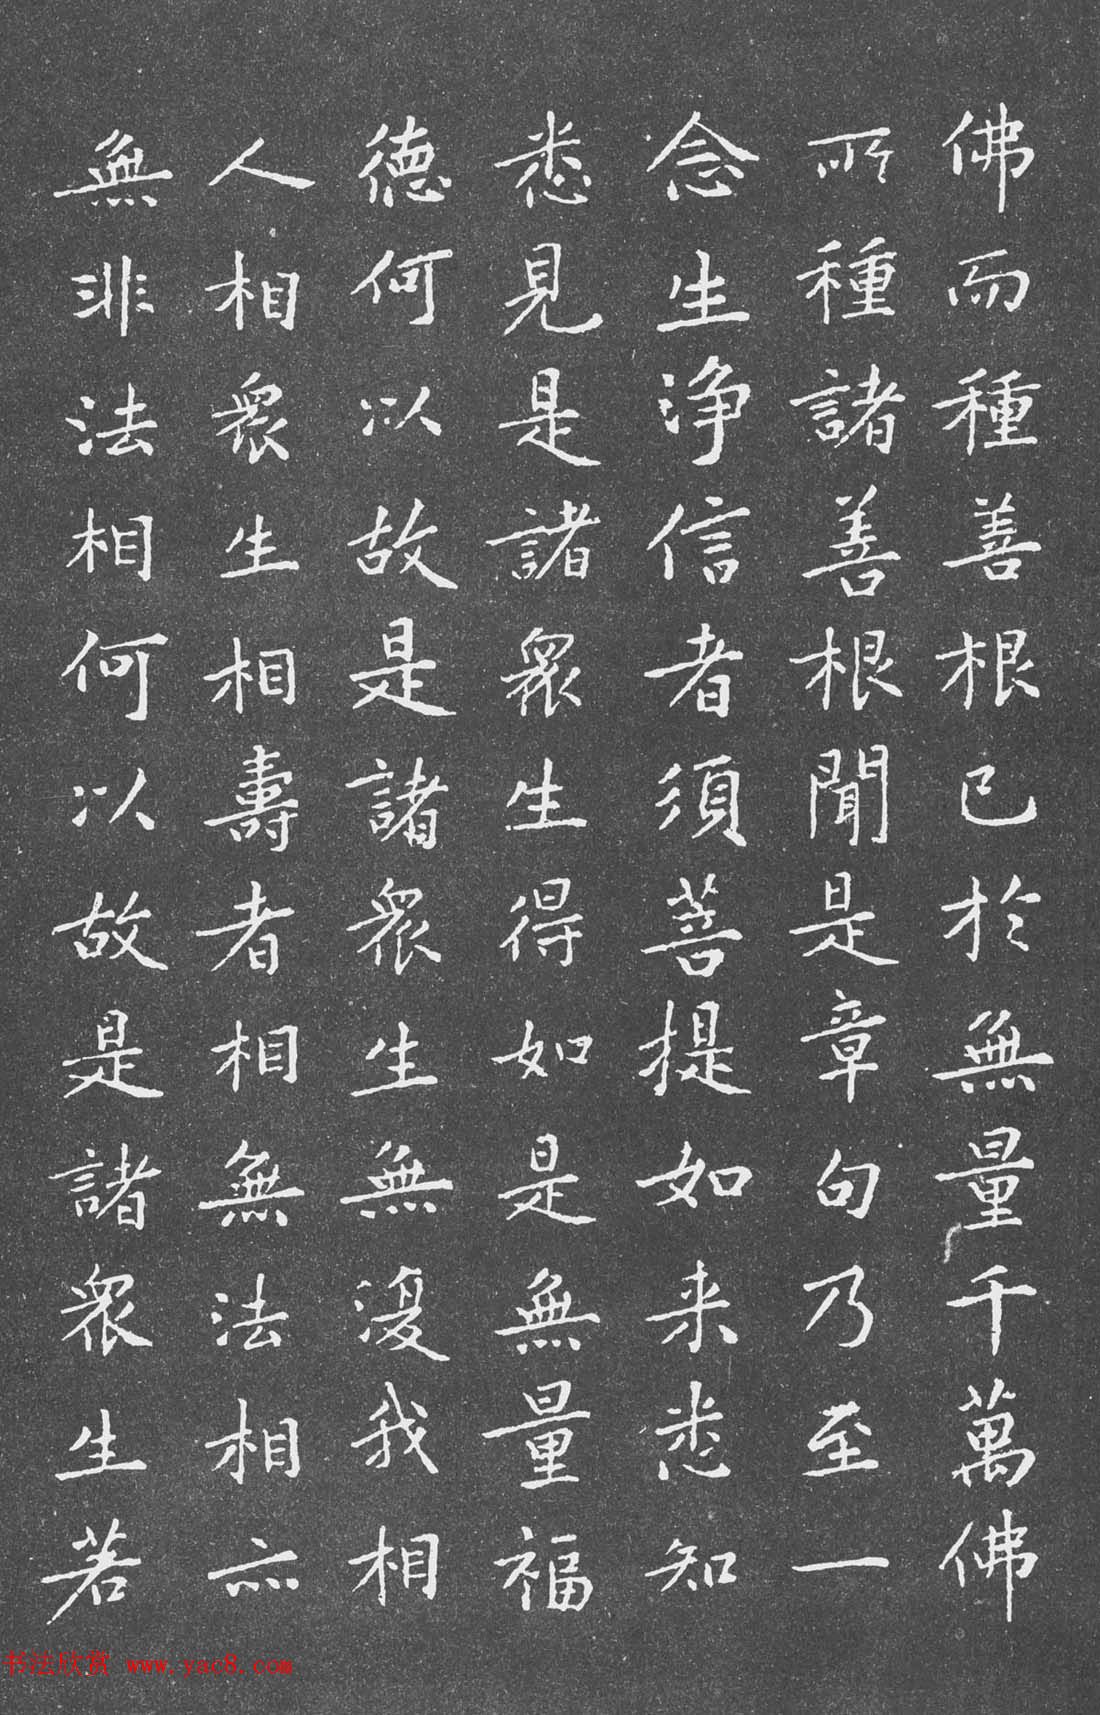 佛而種善根已於無量千萬佛
所種諸善根聞是章句乃至一
念生淨信者須菩提如来悉知
悉見是諸眾生得如是無量福
德何以故是諸眾生無復我相
人相眾生相壽者相無法相亦
無非法相何以故是諸眾生若
书法欣赏 www.yac8.com